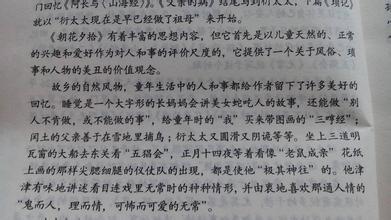 门回忆《阿长与〈山海经〉》。《父亲的病》结尾写到衍太太,下篇《琐记》
就以“衍太太现在是早已经做了祖母”来开始。
《朝花夕拾》有着丰富的思想内容,但它首先是以儿童天然的、正常
的兴趣和爱好作为对人和事的评价尺度的,它提供了一个关于风俗、琐
事和人物的美丑的价值观念。
故乡的自然风物,童年生活中的人和事都给作者留下了许多美好的
回忆。睡觉是一个大字形的长妈妈会讲美女蛇吃人的故事,还能做“别
人不肯做,或不能做的事”,给童年时的“我”买来带图画的“三哼经”;
闰土的父亲善于在雪地里捕鸟;衍太太又圆滑又阴诡等等。坐上三道明
瓦窗的大船去东关看“五猖会”,正月十四夜等着看像“老鼠成亲”花纸
上画的那样尖腮细腿的仪仗队的出现,都是使他“极其神往”的。他津
津有味地讲述看目连戏里无常时的种种情形,并由衷地喜欢那通人情的
“鬼而人,理而情,可怖而可爱的无常”。